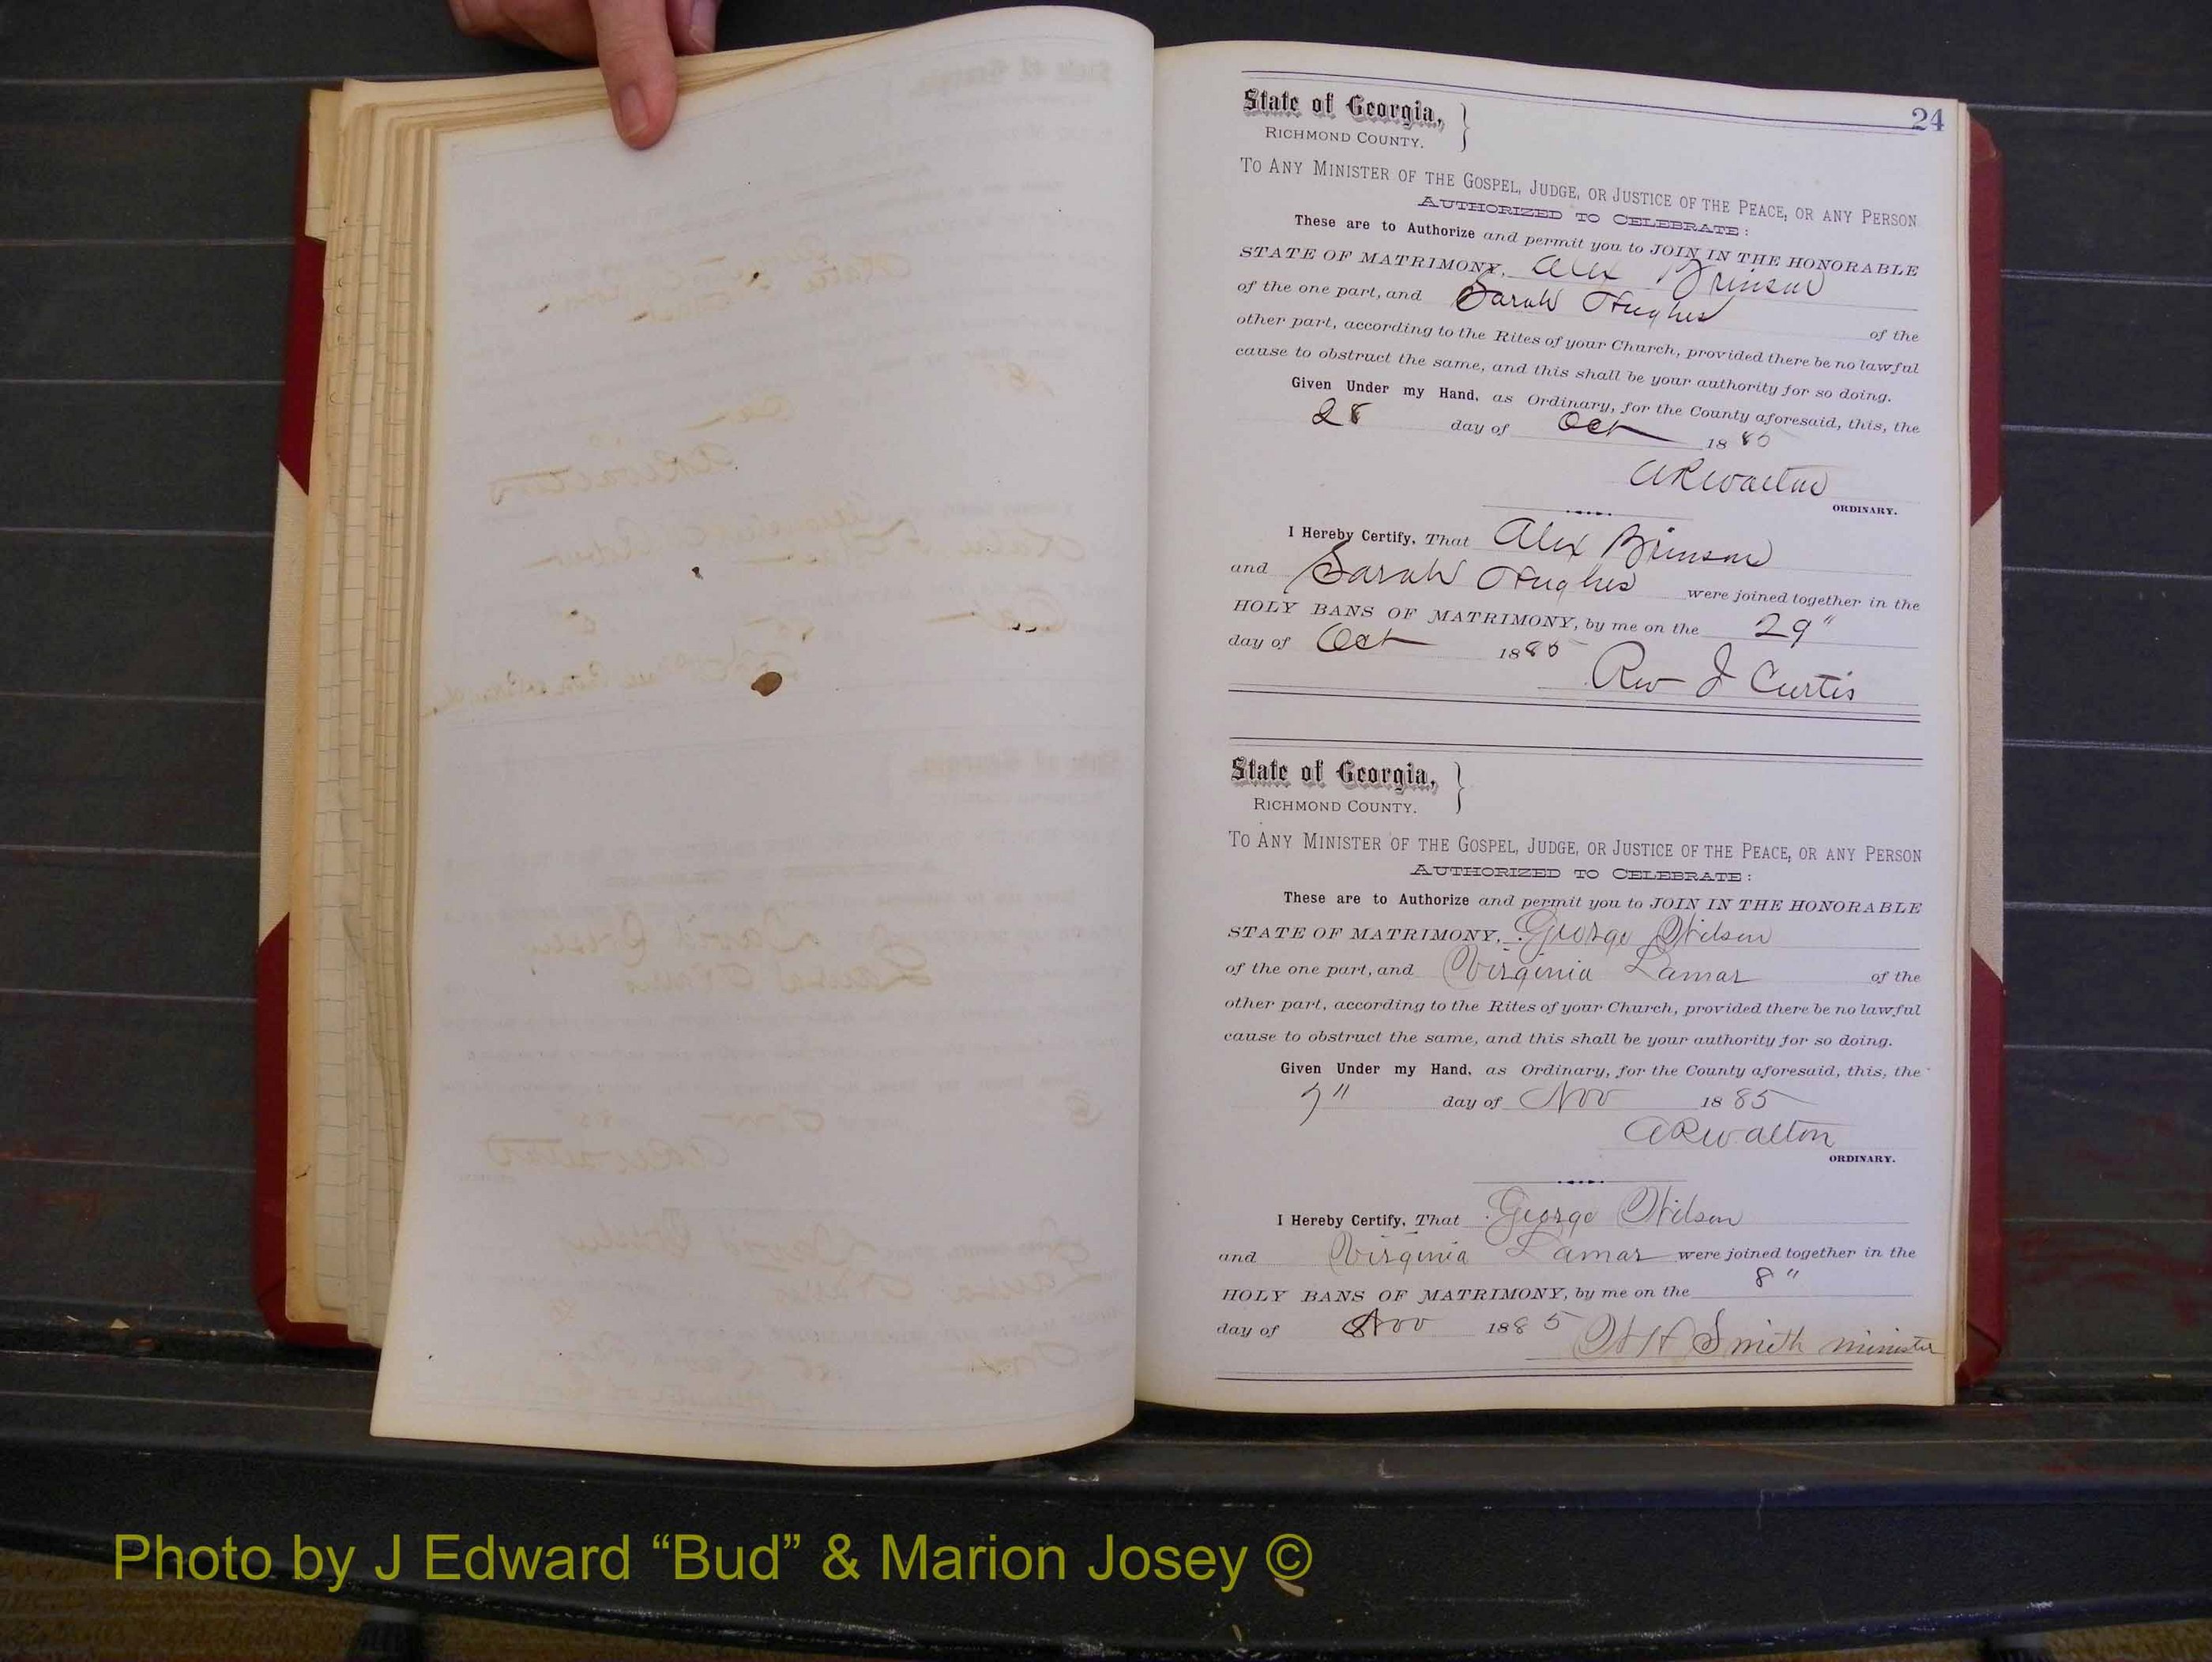 24
State of Georgia,
RICHMOND COUNTY.
TO ANY MINISTER OF THE GOSPEL, JUDGE, OR JUSTICE OF THE PEACE, OR ANY PERSON
AUTHORIZED TO CELEBRATE:
These are to Authorize and permit you to JOIN IN THE HONORABLE
STATE OF MATRIMONY, Alex Brinson
of the one part, and Sarah Hughes of the
other part, according to the Rites of your Church, provided there be no lawful
cause to obstruct the same, and this shall be your authority for so doing.
Given Under my Hand, as Ordinary, for the County aforesaid, this, the
28 day of Oct 1885
ARWalton
ORDINARY.
I Hereby Certify, That Alex Brinson
and Sarah Hughes were joined together in the
HOLY BANS OF MATRIMONY, by me on the 29"
day of Oct 1885 Rev J Curtis
State of Georgia,
RICHMOND COUNTY.
TO ANY MINISTER OF THE GOSPEL, JUDGE, OR JUSTICE OF THE PEACE, OR ANY PERSON
AUTHORIZED TO CELEBRATE:
These are to Authorize and permit you to JOIN IN THE HONORABLE
STATE OF MATRIMONY, George Wilson
of the one part, and Virginia Lamar of the
other part, according to the Rites of your Church, provided there be no lawful
cause to obstruct the same, and this shall be your authority for so doing.
Given Under my Hand, as Ordinary, for the County aforesaid, this, the
7" day of Nov 1885
ARWalton
ORDINARY.
I Hereby Certify, That George Wilson
and Virginia Lamar were joined together in the
HOLY BANS OF MATRIMONY, by me on the 8"
day of Nov 1885 W H Smith minister
Photo by J Edward “Bud” & Marion Josey ©